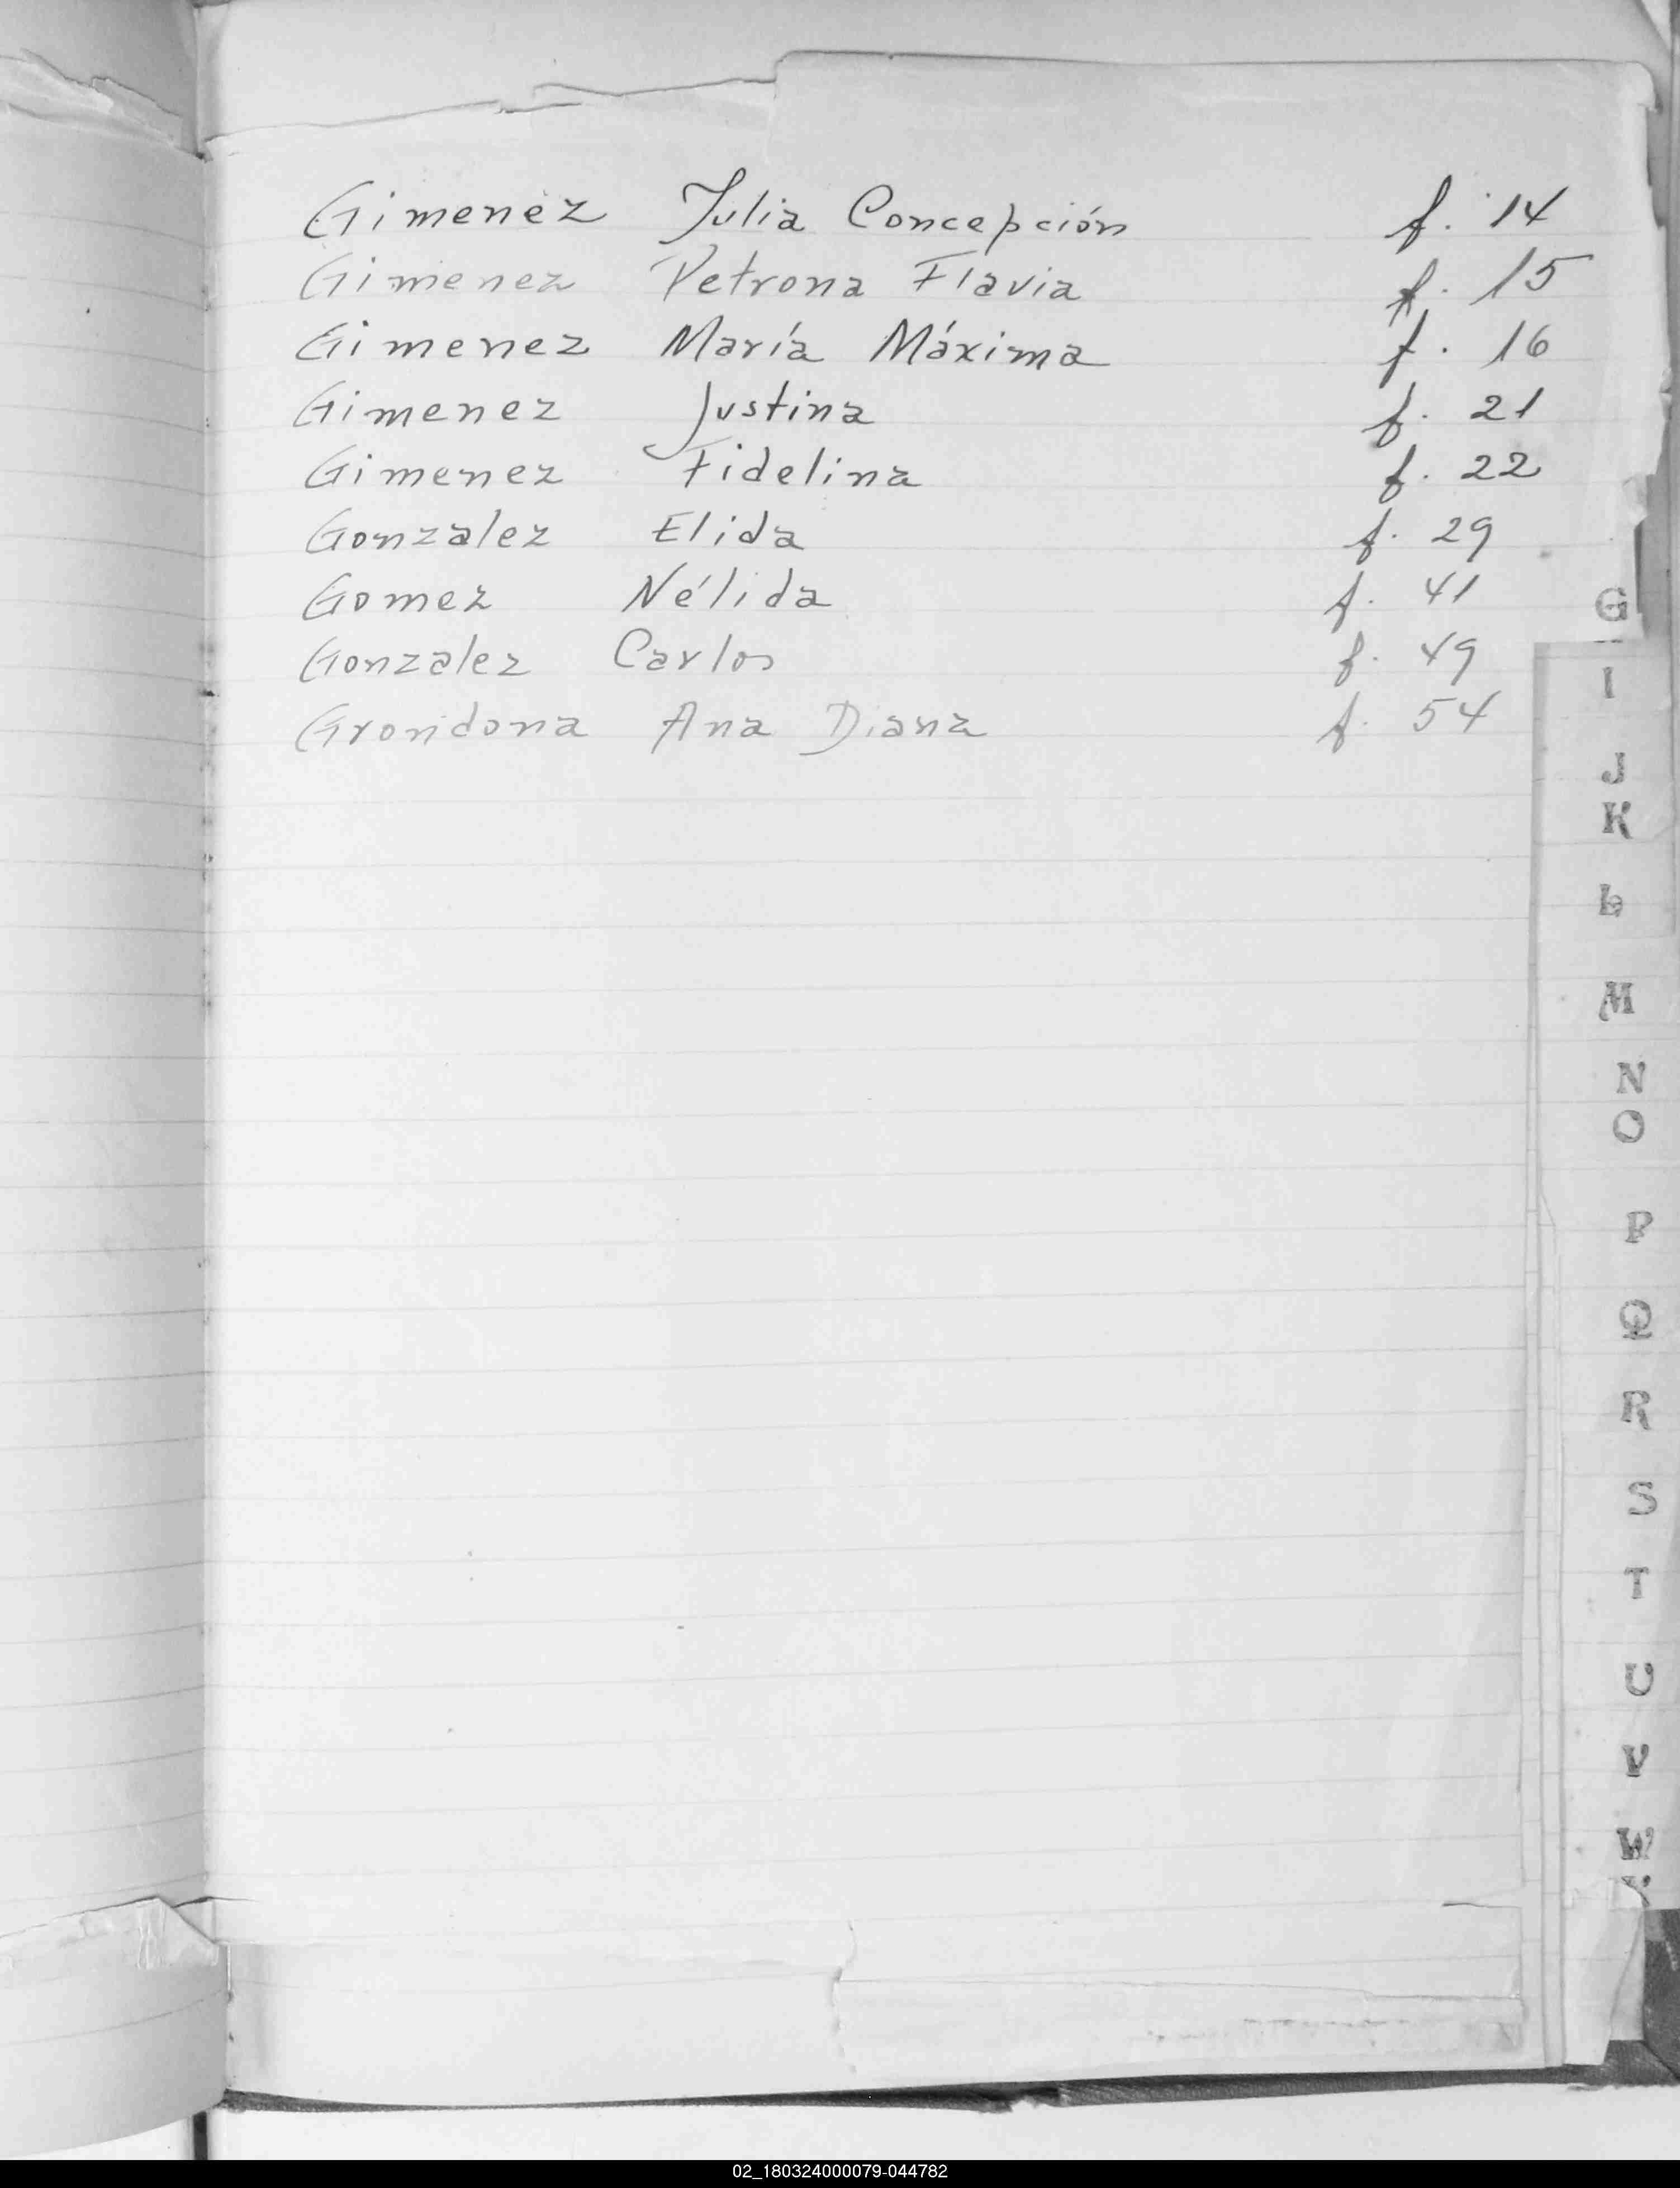 Gimenez Julia Concepción f. 14
Gimenez Petrona Flavia f. 15
Gimenez María Máxima f. 16
Gimenez Justina f. 21
Gimenez Fidelina f. 22
Gonzalez Elida f. 29
Gomez Nélida f. 41
Gonzalez Carlos f. 49
Grondona Ana Diana f. 54
G
I
J
K
L
M
N
O
P
Q
R
S
T
U
V
W
02_180324000079-044782